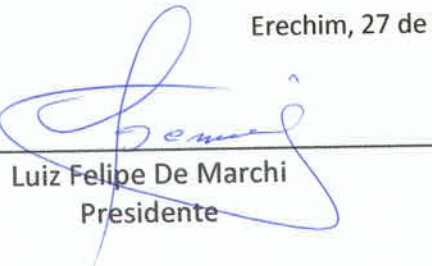 Erechim, 27 de
Luiz Felipe De Marchi
Presidente